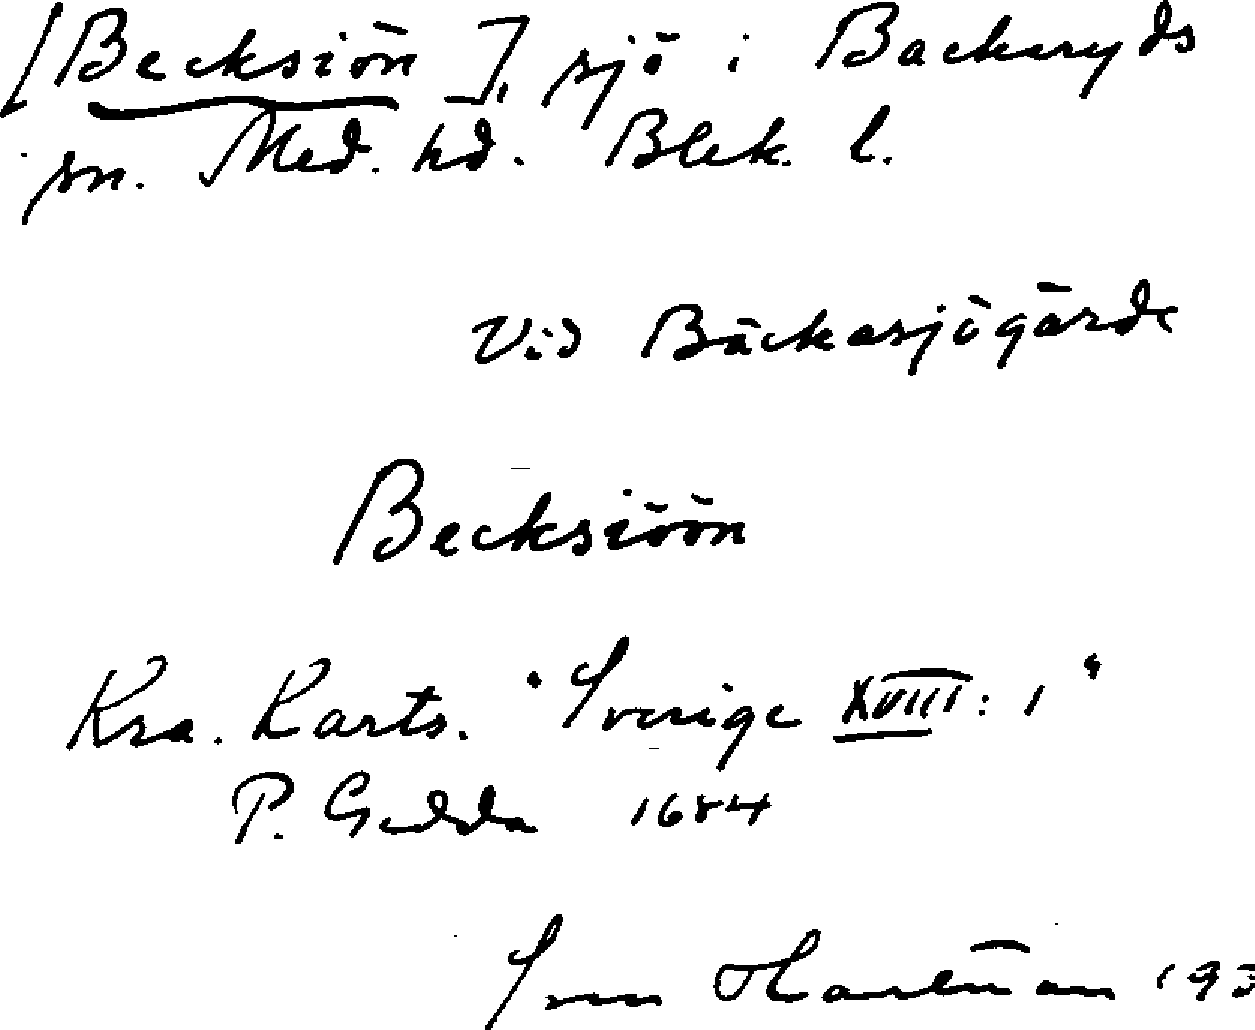 [Becksiön], sjö i Backaryds
sn. Med. hd. Blek. l.
Vid Bäckasjögärde
Becksiöön
Kra. Karts. "Sverige XVIII: 1"
P. Gedda 1684
Sven Hartman 193